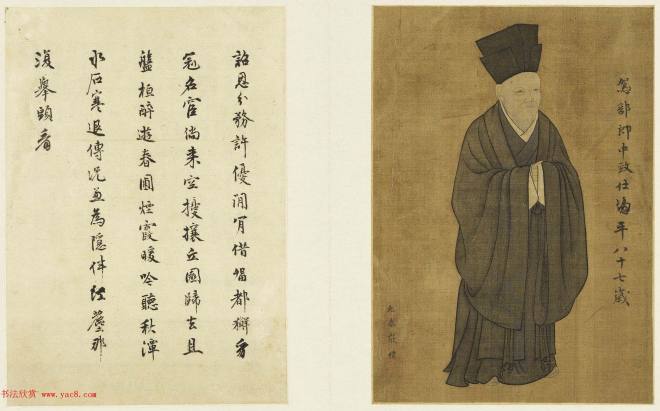 駕部郎中致仕馮平八十七歲
詔恩分務許優閒肯借留都獬豸
冠名宦倘來空擾攘丘園歸去且
盤桓醉遊春圃煙霞暖吟聽秋潭
水石寒退傅況兼為隱伴紅塵那
復舉頭看
书法欣赏 www.yac8.com